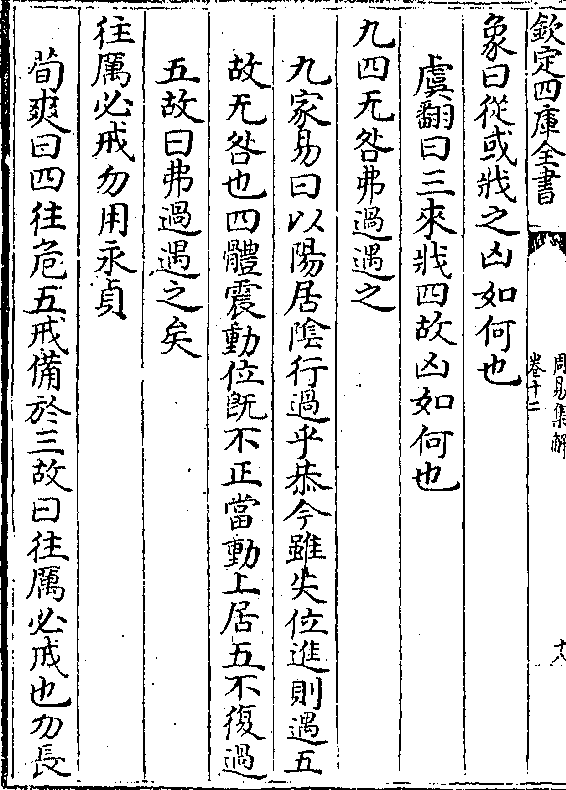 欽定四庫全書
周易集解
卷十二
十八
象曰從或戕之凶如何也
虞翻曰三來戕四故凶如何也
九四无咎弗過遇之
九家易曰以陽居陰行過乎恭今雖失位進則遇五
故无咎也四體震動位旣不正當動上居五不復過
五故曰弗過遇之矣
往厲必戒勿用永貞
荀爽曰四往危五戒備於三故曰往厲必戒也勿長